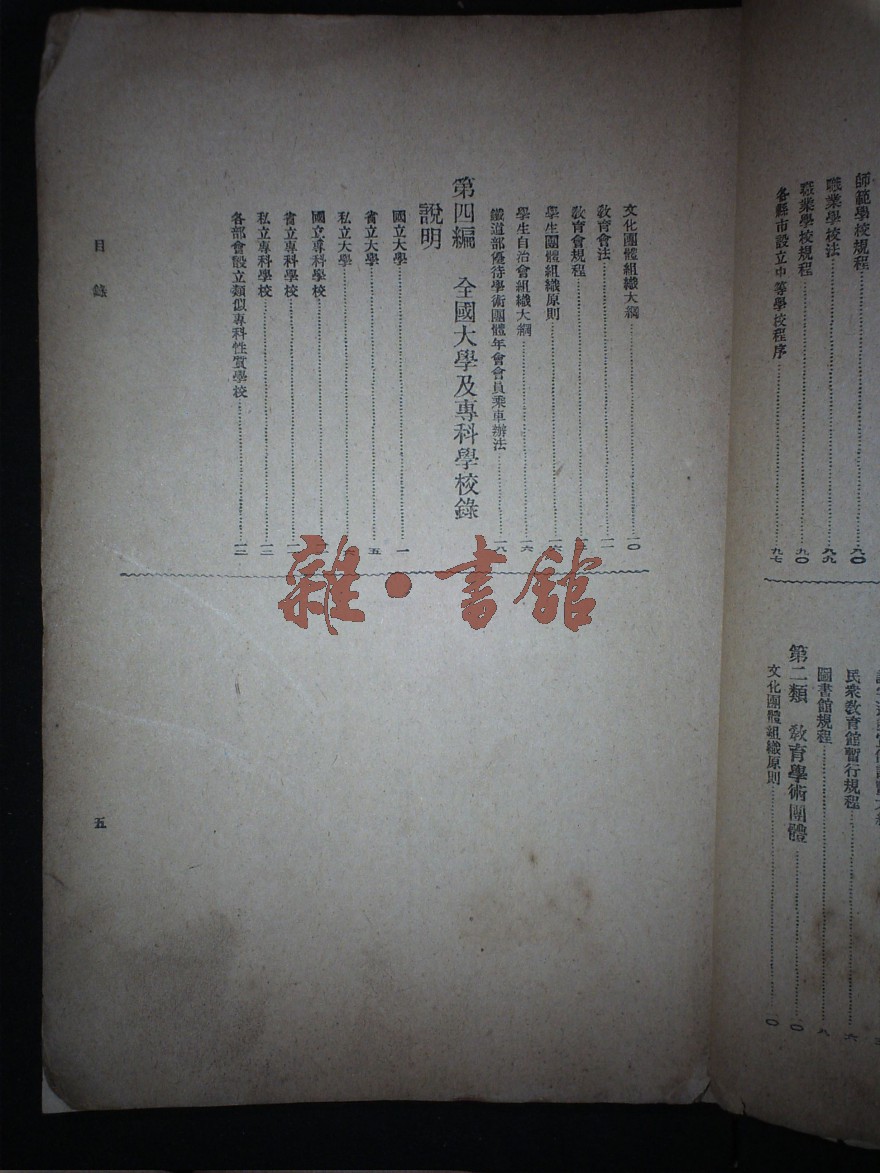 師範學校規程……九〇
職業學校法……八九
職業學校規程……九〇
各縣市設立中等學校程序……九七
民衆教育館暫行規程……六
圖書館規程……八
第二類 教育學術團體……一〇
文化團體組織原則……一〇
文化團體組織大綱……一〇
教育會法……一一
教育會規程
學生團體組織原則……一六
學生自治會組織大綱……一六
鐵道部優待學術團體年會會員乘車辦法……一八
第四編 全國大學及專科學校錄
說明
國立大學……一
省立大學……五
私立大學
國立專科學校
省立專科學校
私立專科學校……一三
各部會設立類似專科性質學校……一三
目錄
五
雜·書館